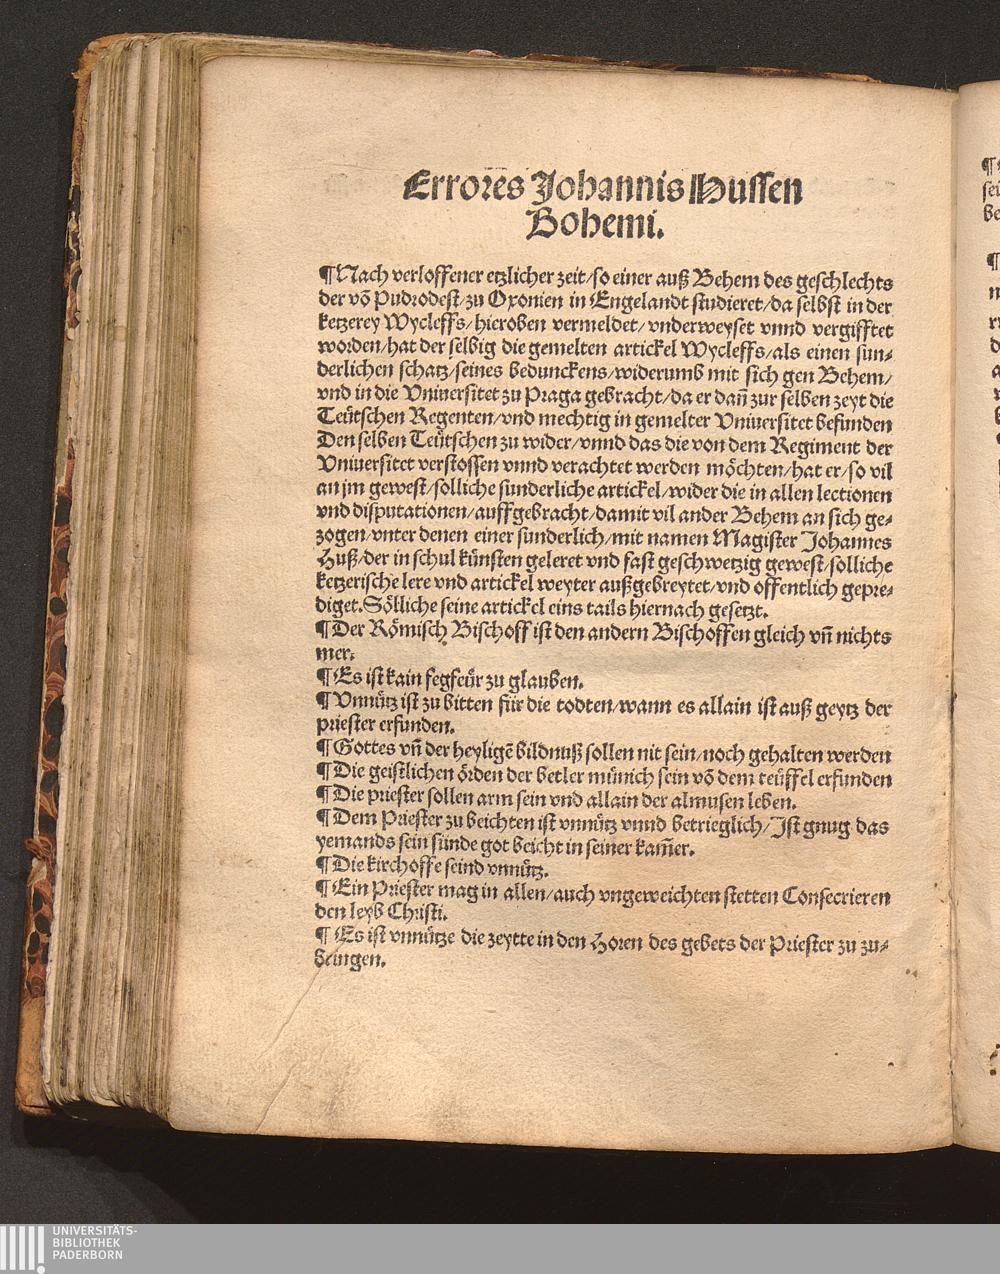 Errores Johannis Hussen
Bohemi.
¶Nach verloffener etzlicher zeit/so einer auß Behem des geschlechts
der võ Pudrodest/zu Oxonien in Engelandt studieret/da selbst in der
ketzerey Wycleffs/hieroben vermeldet/vnderweyset vnnd vergifftet
worden/hat der selbig die gemelten artickel Wycleffs/als einen sun⸗
derlichen schatz/seines bedunckens/widerumb mit sich gen Behem/
vnd in die Vniuersitet zu Praga gebracht/da er dañ zur selben zeyt die
Teütschen Regenten/vnd mechtig in gemelter Vniuersitet befunden
Den selben Teütschen zu wider/vnnd das die von dem Regiment der
Vniuersitet verstossen vnnd verachtet werden möchten/hat er/so vil
an jm gewest/solliche sunderliche artickel/wider die in allen lectionen
vnd disputationen/auffgebracht/damit vil ander Behem an sich ge⸗
zogen/vnter denen einer sunderlich/mit namen Magister Johannes
Huß/der in schul künsten geleret vnd fast geschwetzig gewest/solliche
ketzerische lere vnd artickel weyter außgebreytet/vnd offentlich gepre⸗
diget. Sölliche seine artickel eins tails hiernach gesetzt.
¶Der Römisch Bischoff ist den andern Bischoffen gleich vñ nichts
mer.
¶Es ist kain fegfeür zu glauben.
¶Vnnütz ist zu bitten für die todten/wann es allain ist auß geytz der
priester erfunden.
¶Gottes vñ der heyligẽ bildnuß sollen nit sein/noch gehalten werden
¶Die geistlichen örden der betler münich sein võ dem teüffel erfunden
¶Die priester sollen arm sein vnd allain der almusen leben.
¶Dem Priester zu beichten ist vnnütz vnnd betrieglich/Ist gnug das
yemands sein sünde got beicht in seiner kam̃er.
¶Die kirchoffe seind vnnütz.
¶Ein Priester mag in allen/auch vngeweichten stetten Consecrieren
den leyb Christi.
¶Es ist vnnütze die zeytte in den Horen des gebets der Priester zu zu⸗
bringen.
UNIVERSITÄTS-
BIBLIOTHEK
PADERBORN